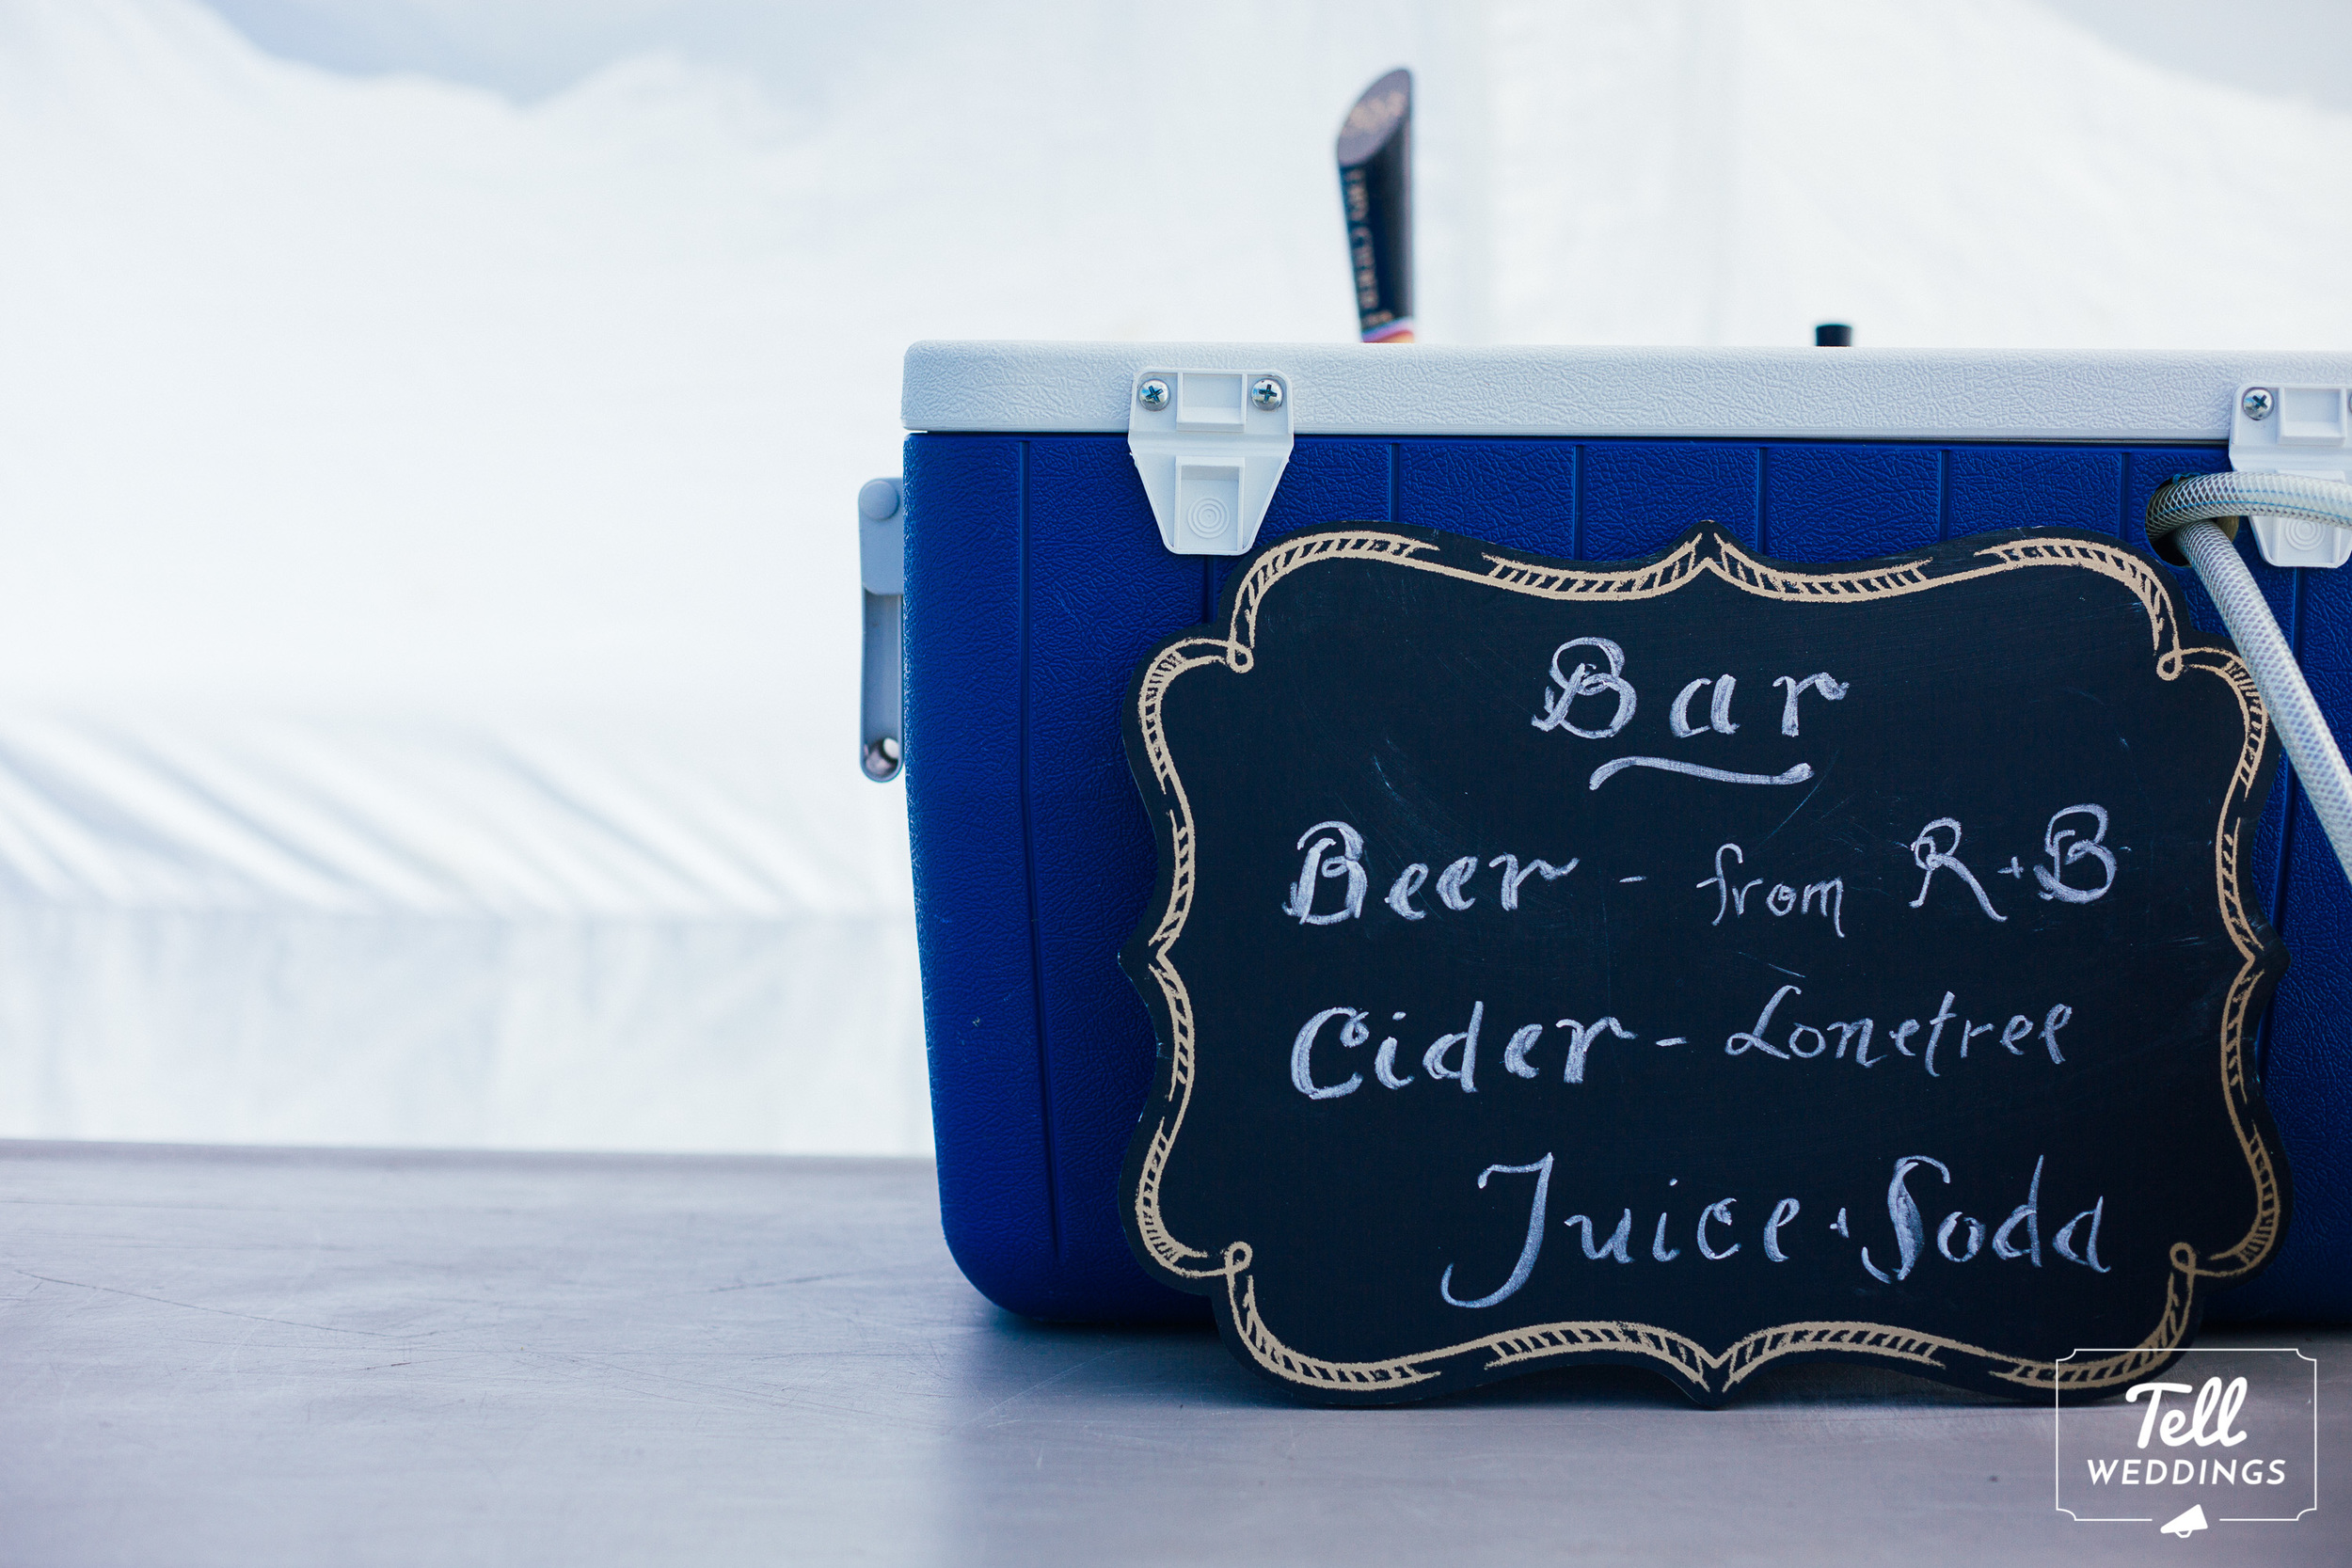 Bar
Beer - from R+B
Cider - Lonetree
Juice + Soda
Tell
WEDDINGS